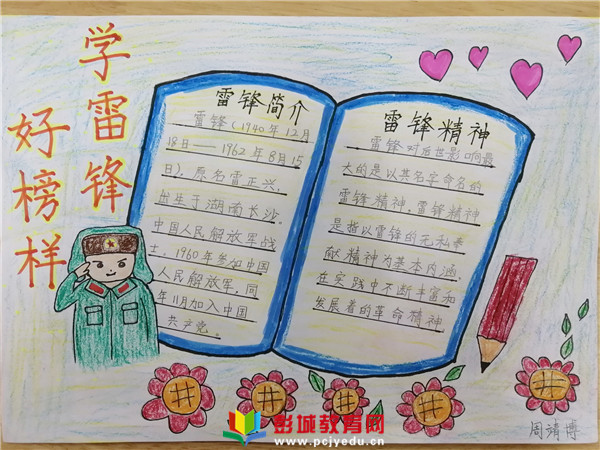 学雷锋
好榜样
雷锋简介
雷锋（1940年12月
18日——1962年8月15
日），原名雷正兴，
出生于湖南长沙，
中国人民解放军战
士，1960年参加中国
人民解放军，同
年11月加入中国
共产党。
雷锋精神
雷锋对后世影响最
大的是以其名字命名的
雷锋精神，雷锋精神
是指以雷锋的无私奉
献精神为基本内涵，
在实践中不断丰富和
发展着的革命精神
周靖博
彭城教育网
www.pcjyedu.cn